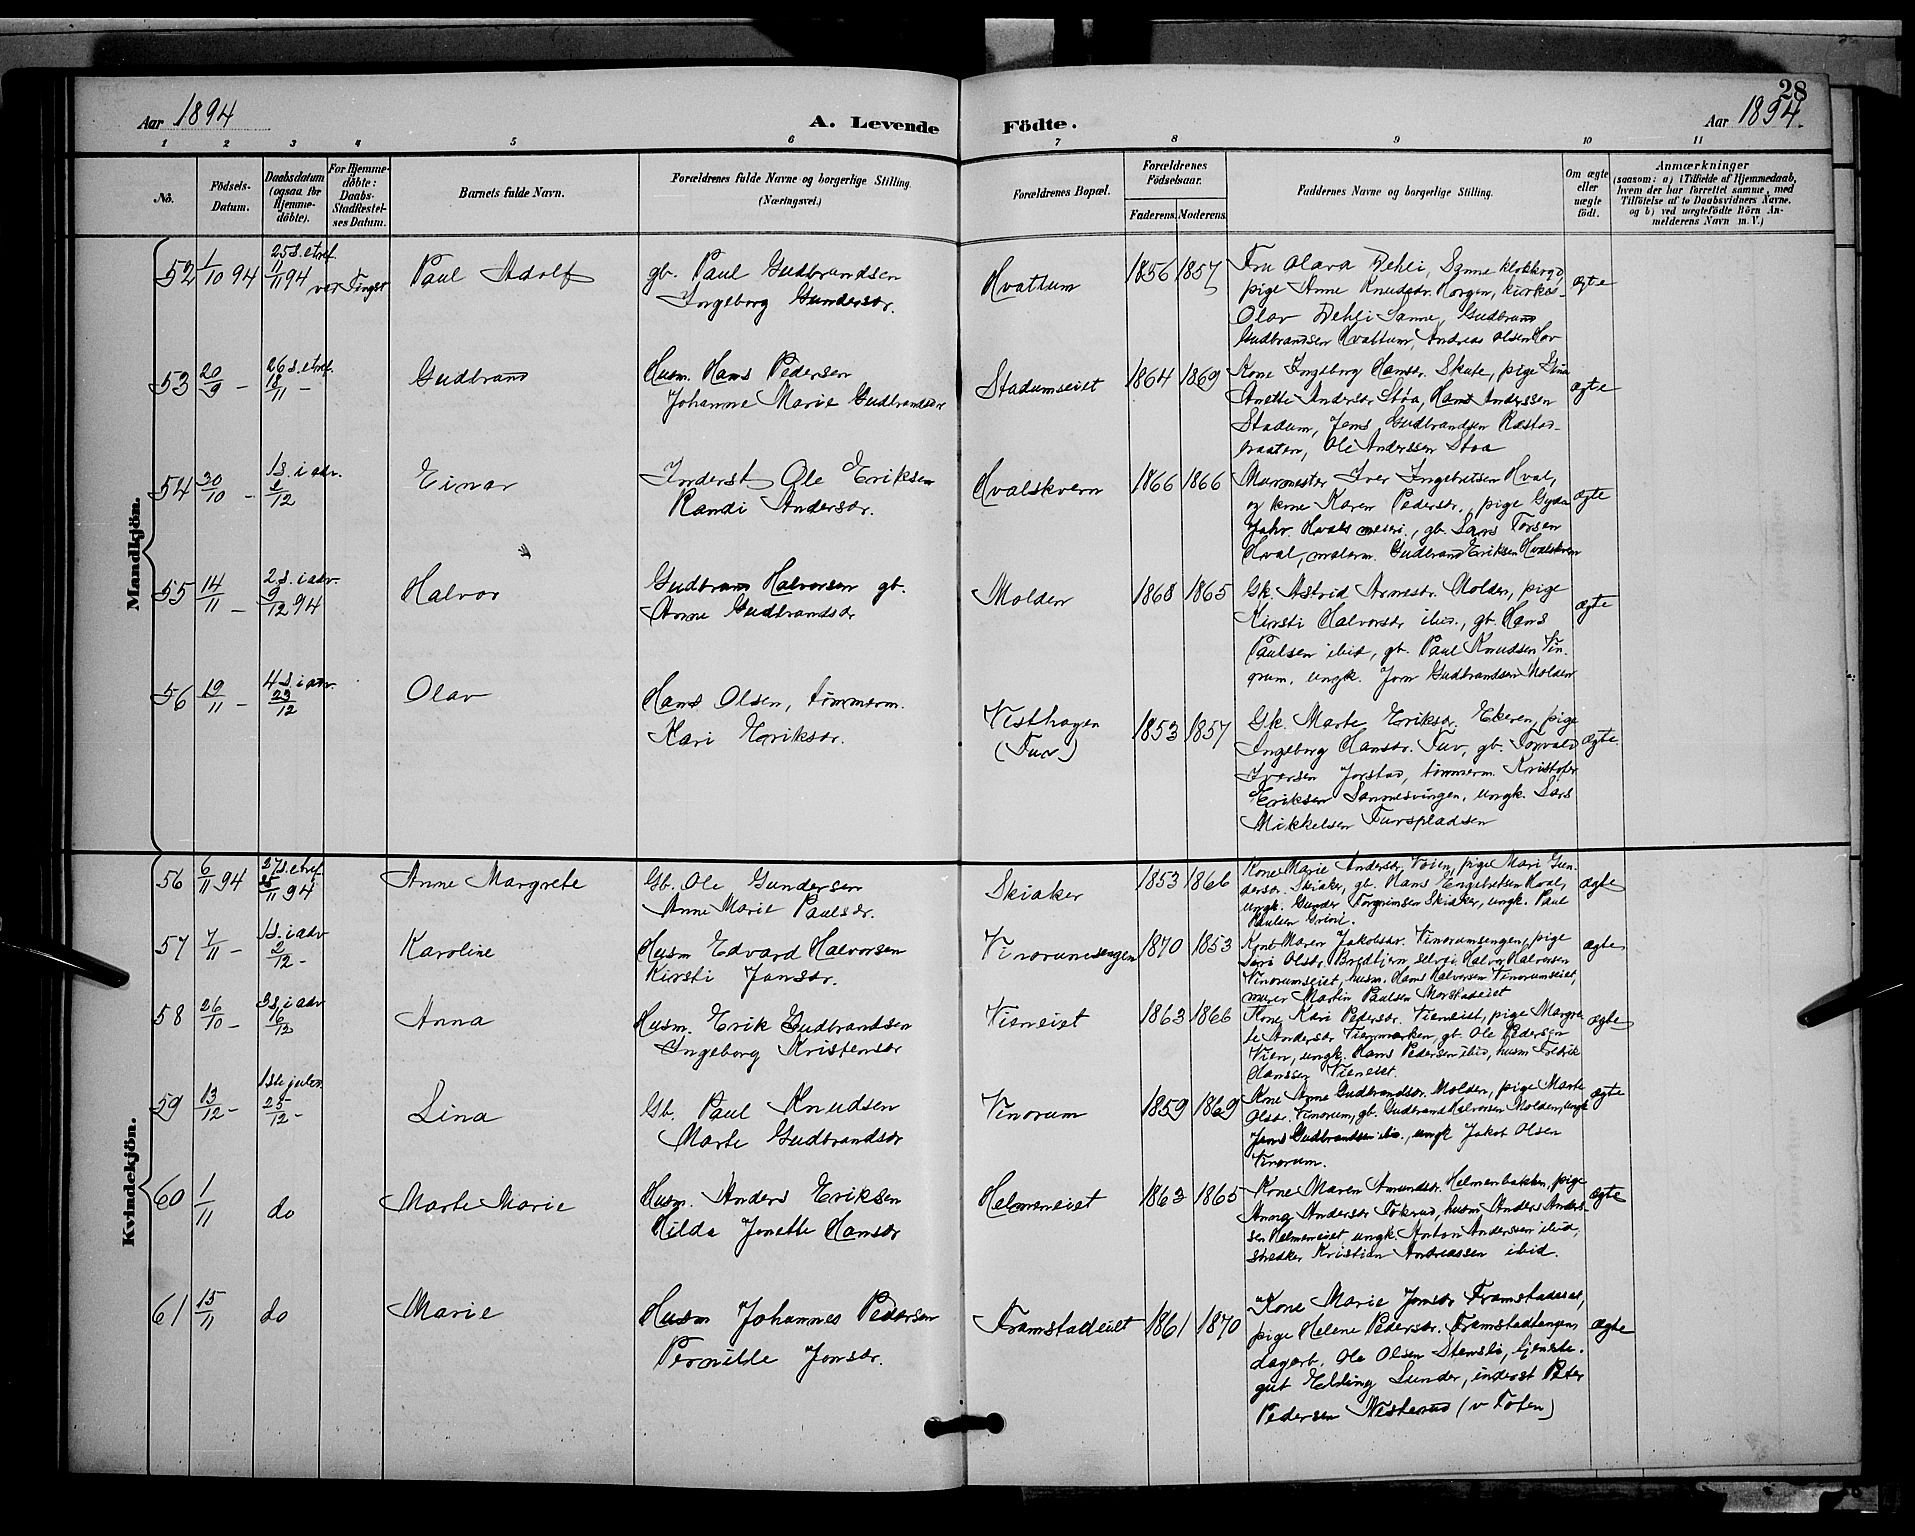 28
Aar 1894
A. Levende Födte.
Aar 1894.
1 2 3 4 5 6 7 8 9 10 11
No.
Födsels-
Datum.
Daabsdatum
(ogsaa for
Hjemme-
döbte).
For Hjemme-
döbte:
Daabs-
Stadfæstel-
ses Datum.
Barnets fulde Navn.
Forældrenes fulde Navne og borgerlige Stilling.
(Næringsvei.)
Forældrenes Bopæl.
Forældrenes
Födselsaar.
Faderens. Moderens.
Faddernes Navne og borgerlige Stilling.
Om ægte
eller
uægte
födt.
Anmærkninger
(saasom: a) i Tilfælde af Hjemmedaab,
hvem der har forrettet samme, med
Tilföielse af to Daabsvidners Navne,
og b) ved uægtefödte Börn An-
melderens Navn m. V.)
Mandkjön.
52 1/10 94
25 s. e. tref.
11/11 94
Paul Adolf
gb. Paul Gudbrandsen
Ingeborg Gundersdr.
Hvattum
1856 1857
Fru Olava Dehli, Sanne
pige Anne Knudsdr. Horgen,
Olav Dehli Sanne, Gudbrand
Gudbrandsen Hvattum, Andreas Olsen Hov
ægte
53 20/9 –
26 s. e. tref.
18/11 –
Gudbrand
Husm. Hans Pedersen
Johanne Marie Gudbrandsdr
Stadumseiet
1864 1869
Kone Ingeborg Hansdr. Skute, pige
Anette Andersdr Stoa, Hans Anderssen
Stadum, Jens Gudbrandsen
Ole Anderssen Stoa
ægte
54 30/10 –
1 s. i adv.
2/12
Einar
Inderst Ole Eriksen
Randi Andersdr.
Hvalskvern
1866 1866
Murmester Iver Ingebretsen Hval,
og kone Karen Pedersdr., pige Gyda
Hvals meieri, gb. Lars Torsen
Hval, malerm. Gudbrand Eriksen Hvalskvern
ægte
55 14/11 –
2 s. i adv.
9/12 94
Halvor
Gudbrand Halvorsen gb.
Anne Gudbrandsdr
Molden
1868 1865
Gk. Astrid Arnesdr. Molden, pige
Kirsti Halvorsdr ibid., gb. Hans
Paulsen ibid, gb. Paul Knudsen Vin-
orum, ungk. Jon Gudbrandsen Molden
ægte
56 19/11 –
4 s. i adv.
23/12
Olav
Hans Olsen, tømmerm.
Kari Eriksdr.
Visthagen
(Tuv)
1853 1857
Gk. Marte Eriksdr. Ekeren, pige
Ingeborg Hansdr. Tuv, gb. Torvald
Iversen Jorstad, tømmerm. Kristofer
Eriksen Sannesvingen, ungk. Lars
Mikkelsen Tuvspladsen
ægte.
Kvindekjön.
56 6/11 94
27 s. e. tref.
25/11 94
Anne Margrete
Gb. Ole Gundersen
Anne Marie Paulsdr.
Skiaker
1853 1866
Kone Marie Andersdr. Voien, pige Mari Gun-
dersdr. Skiaker, gb. Hans Engebretsen Hval,
ungk. Gunder Torgrimsen Skiaker, ungk. Paul
Paulsen Grini.
ægte
57 7/11 –
1 s. i adv
2/12 –
Karoline
Husm Edvard Halvorsen
Kirsti Jansdr.
Vinorumsengen
1870 1853
Kone Maren Jakobsdr. Vinorumsengen, pige
Siri Olsdr. Bredbjern, selvei. Halvor Halvorsen
Vinorumseiet, husm. Hans Halvorsen Vinorumseiet,
murer Martin Paulsen Morstadeiet
ægte
58 26/10 –
3 s. i adv
16/12
Anna
Husm. Erik Gudbrandsen
Ingeborg Kristensdr
Vieneiet
1863 1866
Kone Kari Pedersdr. Vieneiet, pige Margre-
te Andersdr Vienmarken, gb. Ole Pedersen
Vien, ungk. Hans Pedersen ibid, husm Fredrik
Hanssen Vieneiet.
ægte
59 13/12 –
1ste juled.
25/12 –
Lina
Gb. Paul Knudsen
Marte Gudbrandsdr
Vinorum
1859 1869
Kone Anne Gudbrandsdr. Molden, pige Marte
Olsdr. Vinorum, gb. Gudbrand Halvorsen Molden, ungk
Jans Gudbrandsen ibid., ungk Jakob Olsen
Vinorum.
ægte
60 1/11
do
Marte Marie
Husm. Anders Eriksen
Hilda Jonette Hansdr
Helmeneiet
1863 1865
Kone Maren Amundsdr. Helmenbakken, pige
Anna Andersdr Tokerud, husm Anders Anders-
sen Helmeneiet, ungk. Anton Anderssen ibid,
skrædker Kristian Andreassen ibid.
ægte
61 15/11
do
Marie
Husm Johannes Pedersen
Pernille Jonsdr.
Framstadeiet
1861 1870
Kone Marie Jonsdr Framstadeiet,
pige Helene Pedersdr. Framstadengen,
dagarb. Ole Olsen Stensli, tjeneste-
gut Elling Lunder, inderst Peter
Pedersen Nesterud (v Toten)
ægte